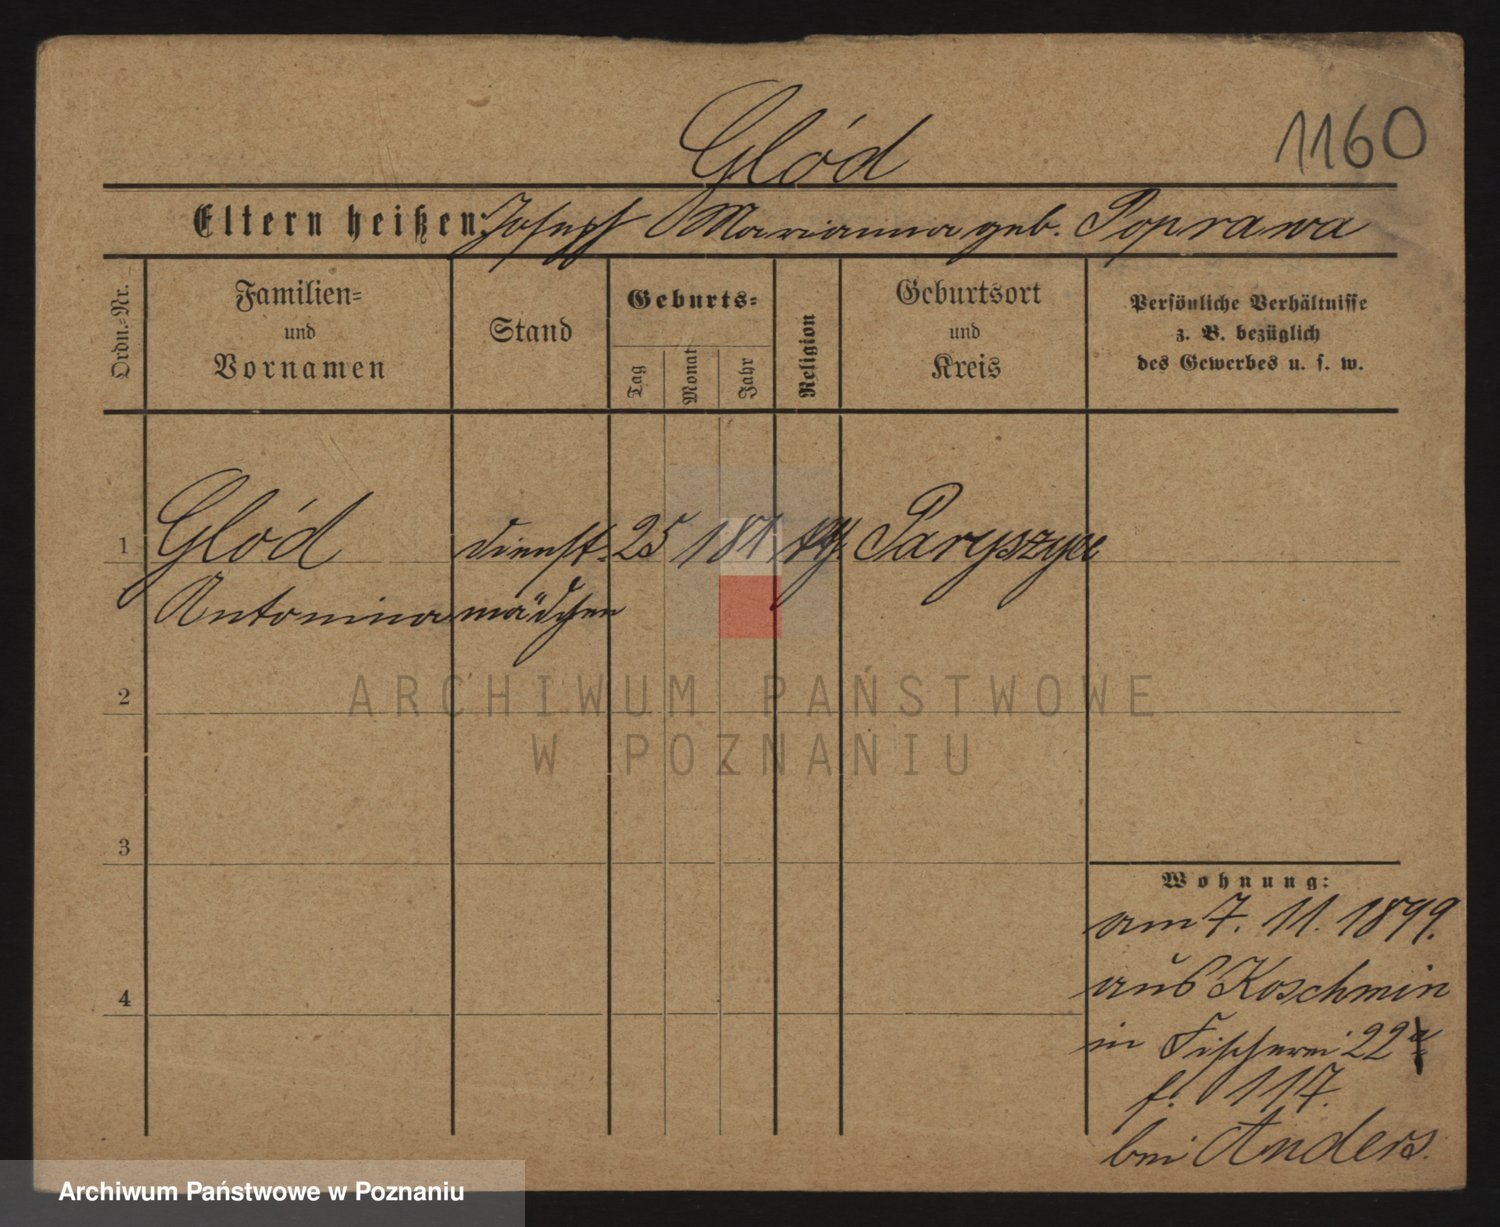 1160
Glód
Eltern heißen: Joseph Marianna geb. Poprawa
Ordn.-Nr.
Familien-
und
Vornamen
Stand
Geburts-
Tag
Monat
Jahr
Religion
Geburtsort
und
Kreis
Persönliche Verhältnisse
z. B. bezüglich
des Gewerbes u. s. w.
1 Glód dienst- 25 1 81
Antonina mädchen
2
3
4
Wohnung:
am 7. 11. 1899.
aus Koschmin
in Fischerei 22a
f. 117.
bei Anders.
ARCHIWUM PAŃSTWOWE
W POZNANIU
Archiwum Państwowe w Poznaniu